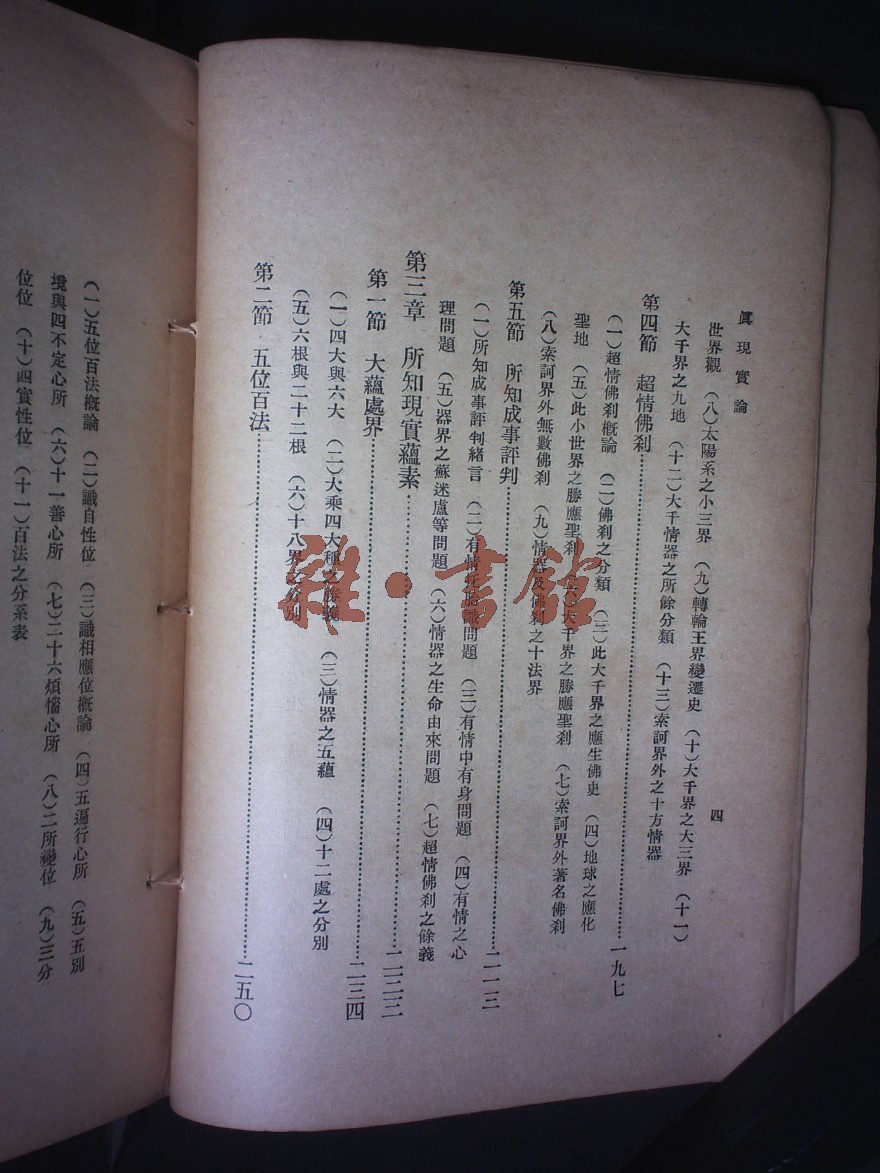 眞現實論
四
世界觀 （八）太陽系之小三界 （九）轉輪王界變遷史 （十）大千界之大三界 （十一）
大千界之九地 （十二）大千情器之所餘分類 （十三）索訶界外之十方情器
第四節 超情佛刹…一九七
（一）超情佛刹槪論 （二）佛刹之分類 （三）此大千界之應生佛史 （四）地球之應化
聖地 （五）此小世界之勝應聖刹 （六）大千界之勝應聖刹 （七）索訶界外著名佛刹
（八）索訶界外無數佛刹 （九）情器及佛刹之十法界
第五節 所知成事評判…二一三
（一）所知成事評判緒言 （二）有情 問題 （三）有情中有身問題 （四）有情之心
理問題 （五）器界之蘇迷盧等問題 （六）情器之生命由來問題 （七）超情佛刹之餘義
第三章 所知現實蘊素…二三三
第一節 大蘊處界…二三四
（一）四大與六大 （二）大乘四大種之餘義 （三）情器之五蘊 （四）十二處之分別
（五）六根與二十二根 （六）十八界之分別
第二節 五位百法…二五〇
（一）五位百法槪論 （二）識自性位 （三）識相應位槪論 （四）五遍行心所 （五）五別
境與四不定心所 （六）十一善心所 （七）二十六煩惱心所 （八）二所變位 （九）三分
位位 （十）四實性位 （十一）百法之分系表
雜·書館